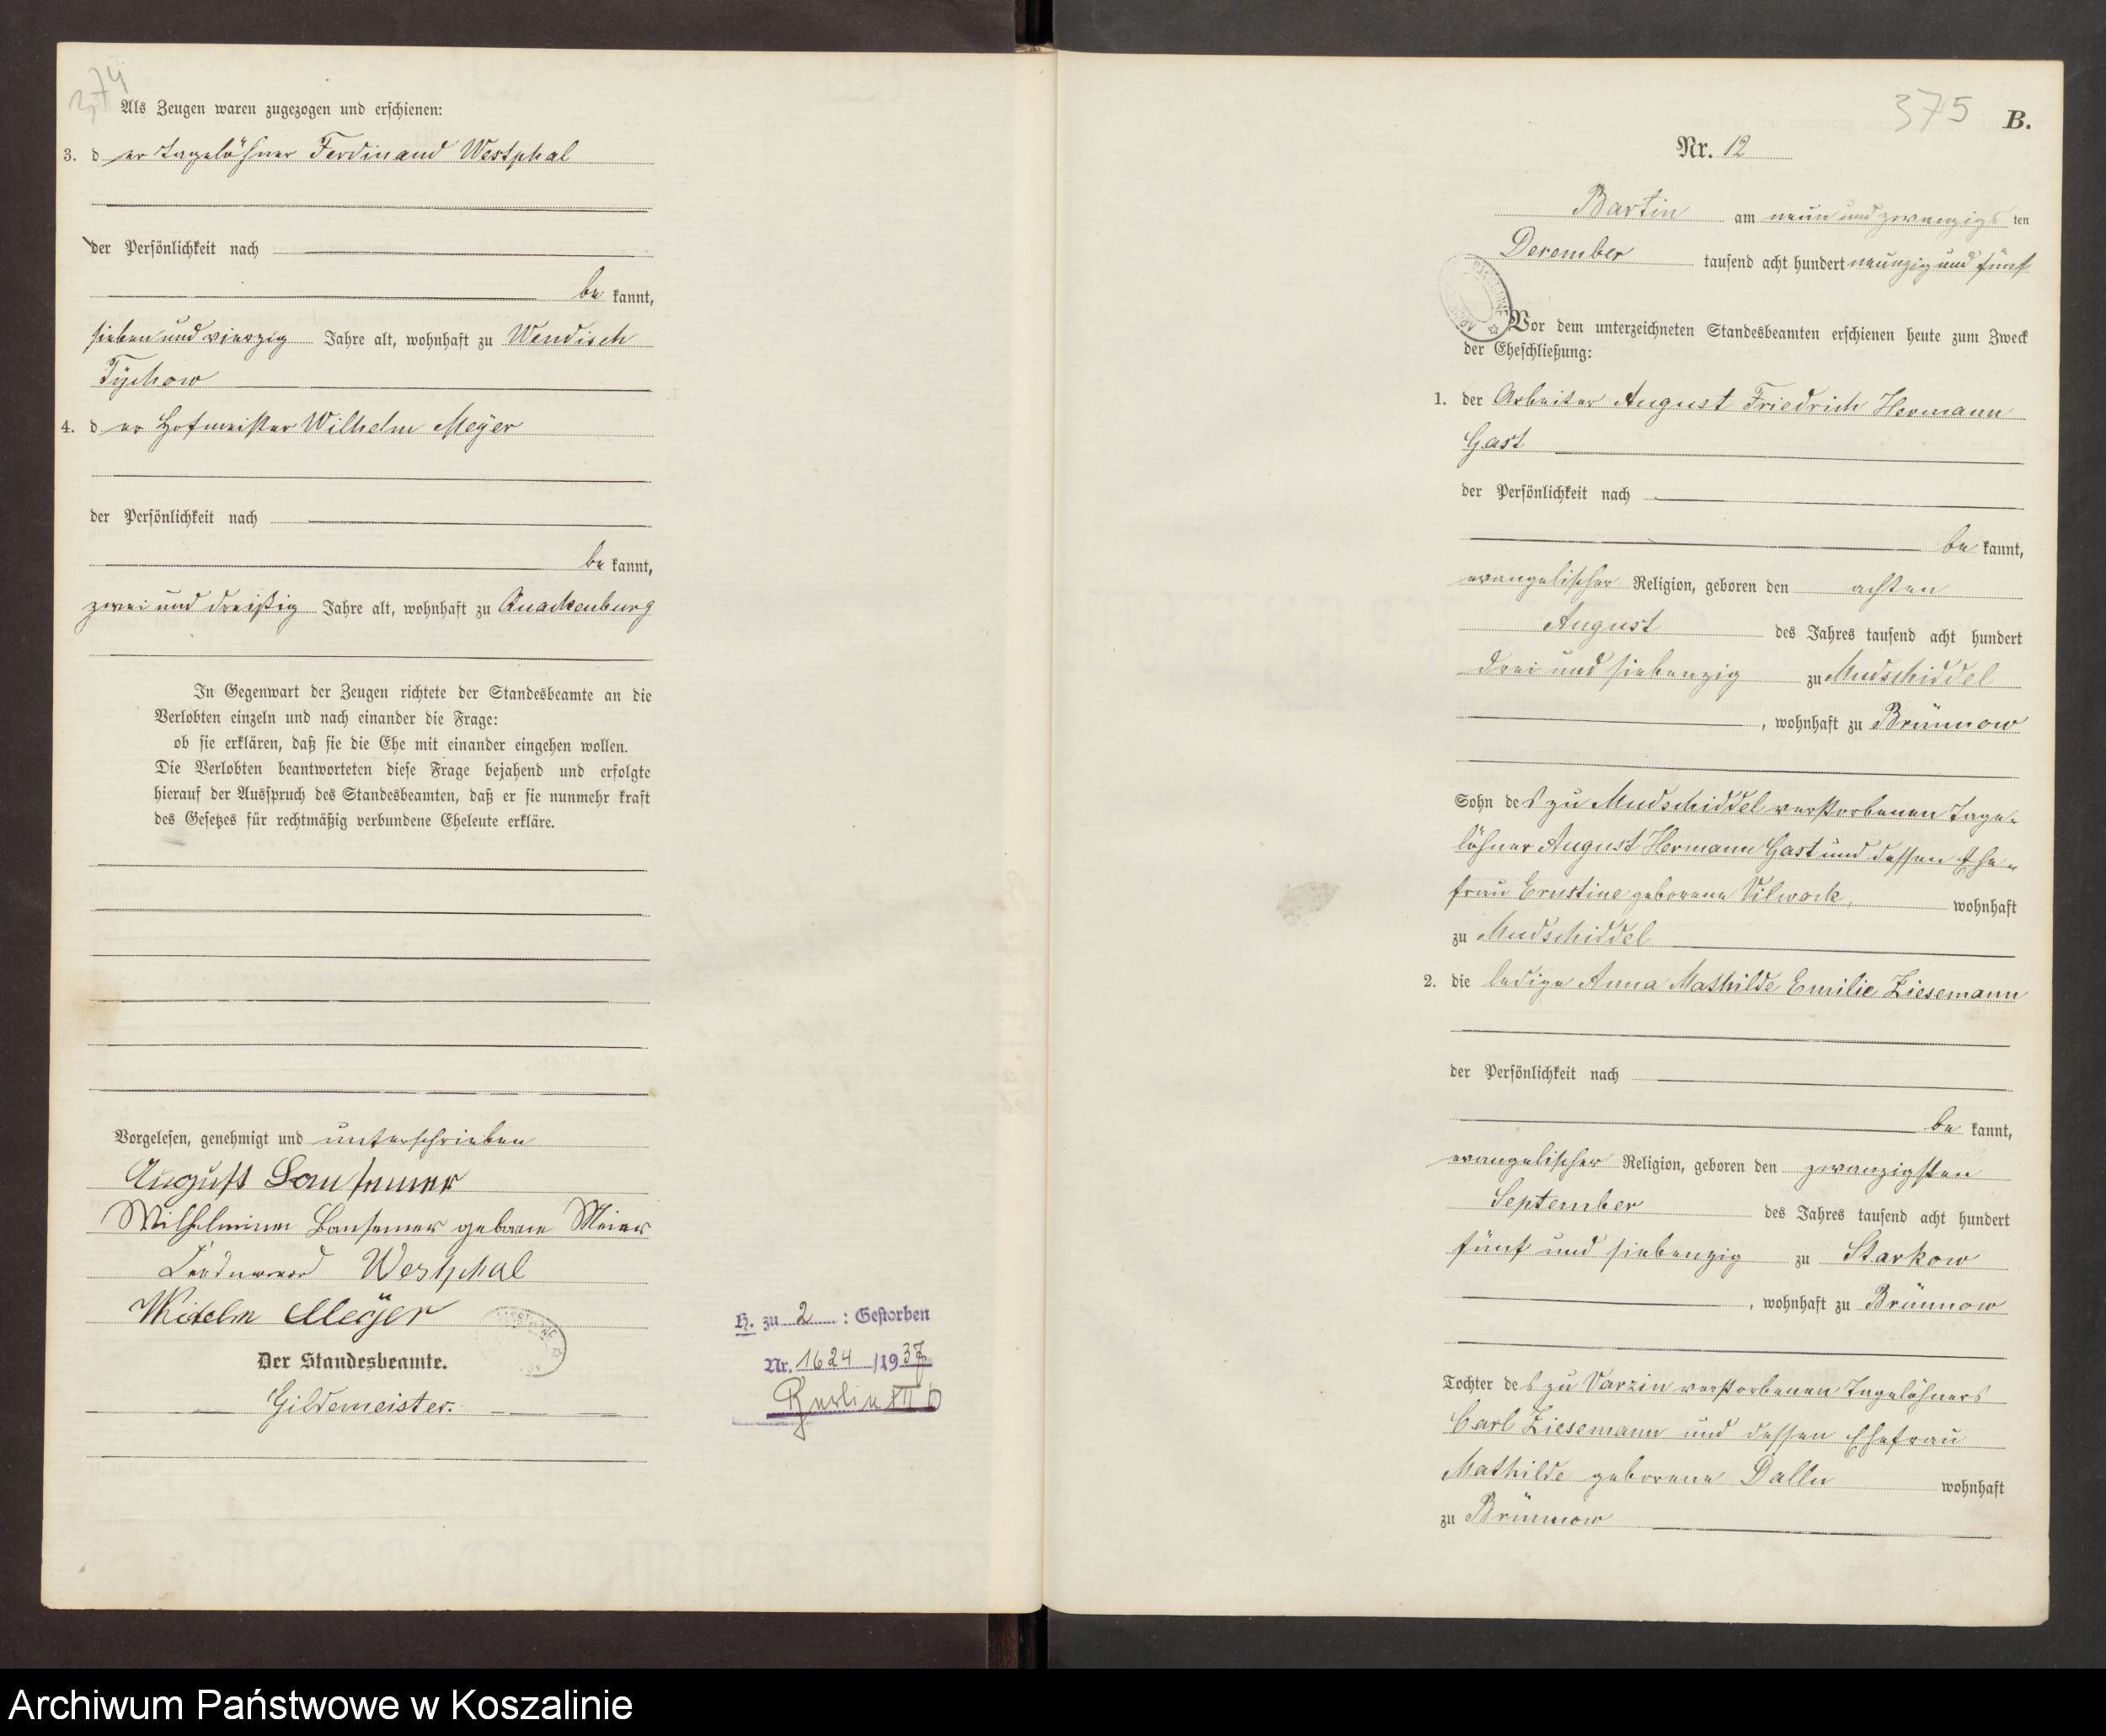 374
Als Zeugen waren zugezogen und erschienen:
3. d er Tagelöhner Ferdinand Westphal
der Persönlichkeit nach
be kannt,
sieben und vierzig Jahre alt, wohnhaft zu Wendisch
Tychow
4. d er Hofmeister Wilhelm Meÿer
der Persönlichkeit nach
be kannt,
zwei und dreißig Jahre alt, wohnhaft zu Quackenburg
In Gegenwart der Zeugen richtete der Standesbeamte an die
Verlobten einzeln und nach einander die Frage:
ob sie erklären, daß sie die Ehe mit einander eingehen wollen.
Die Verlobten beantworteten diese Frage bejahend und erfolgte
hierauf der Ausspruch des Standesbeamten, daß er sie nunmehr kraft
des Gesetzes für rechtmäßig verbundene Eheleute erkläre.
Vorgelesen, genehmigt und unterschrieben
August Lansemer
Wilhelmine Lansemer geborne Meier
Westphal
Meÿer
Der Standesbeamte.
Gildemeister.
H. zu 2 : Gestorben
Nr. 1624 /1937
Berlin XII b
375
B.
Nr. 12
Bartin am neun und zwanzigs ten
Dezember tausend acht hundert neunzig und fünf
Vor dem unterzeichneten Standesbeamten erschienen heute zum Zweck
der Eheschließung:
1. der Arbeiter August Friedrich Hermann
Gast
der Persönlichkeit nach
be kannt,
evangelischer Religion, geboren den achten
August des Jahres tausend acht hundert
drei und siebenzig zu Mudschiddel
, wohnhaft zu Brünnow
Sohn des zu Mudschiddel verstorbenen Tage-
löhner August Hermann Gast und dessen Ehe-
frau Ernstine geborene Vilwock, wohnhaft
zu Mudschiddel
2. die ledige Anna Mathilde Emilie Ziesemann
der Persönlichkeit nach
be kannt,
evangelischer Religion, geboren den zwanzigsten
September des Jahres tausend acht hundert
fünf und siebenzig zu Starkow
, wohnhaft zu Brünnow
Tochter des zu Varzin verstorbenen Tagelöhners
Carl Ziesemann und dessen Ehefrau
Mathilde geborene Dallu wohnhaft
zu Brünnow
Archiwum Państwowe w Koszalinie